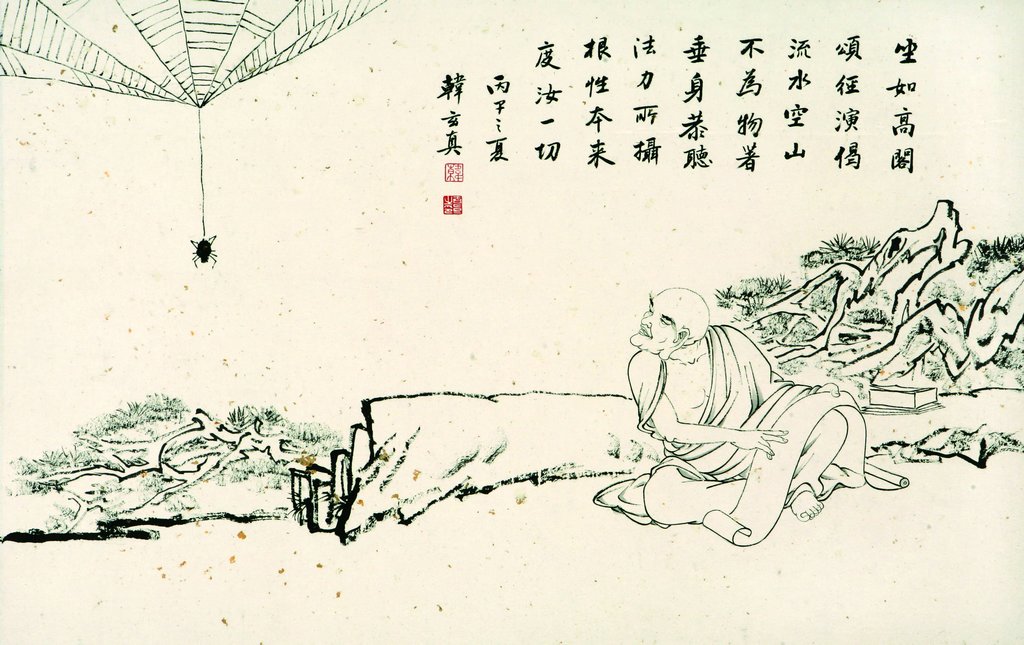 坐如高閣
頌經演偈
流水空山
不為物著
垂身恭聽
法力所攝
根性本来
度汝一切
丙子之夏
韓玄真